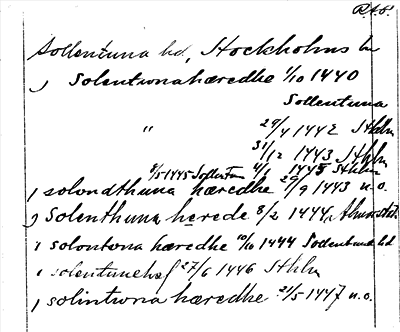 R.A.P.
Sollentuna hd, Stockholms län
) Solentwna hæredhe 1/10 1440
Sollentuna
" 29/4 1442 Sthlm
31/12 1443 Sthlm
8/5 1445 Sollentuna 4/1 1445 Sthlm
) solondthuna hæredhe 29/9 1443 u.o.
) Solenthuna herede 8/2 1444,
) solontona hæredhe 10/10 1444 Sollentuna hd
) solentunehæf 27/6 1446 Sthlm
) solintwna hæredhe 21/5 1447 u.o.